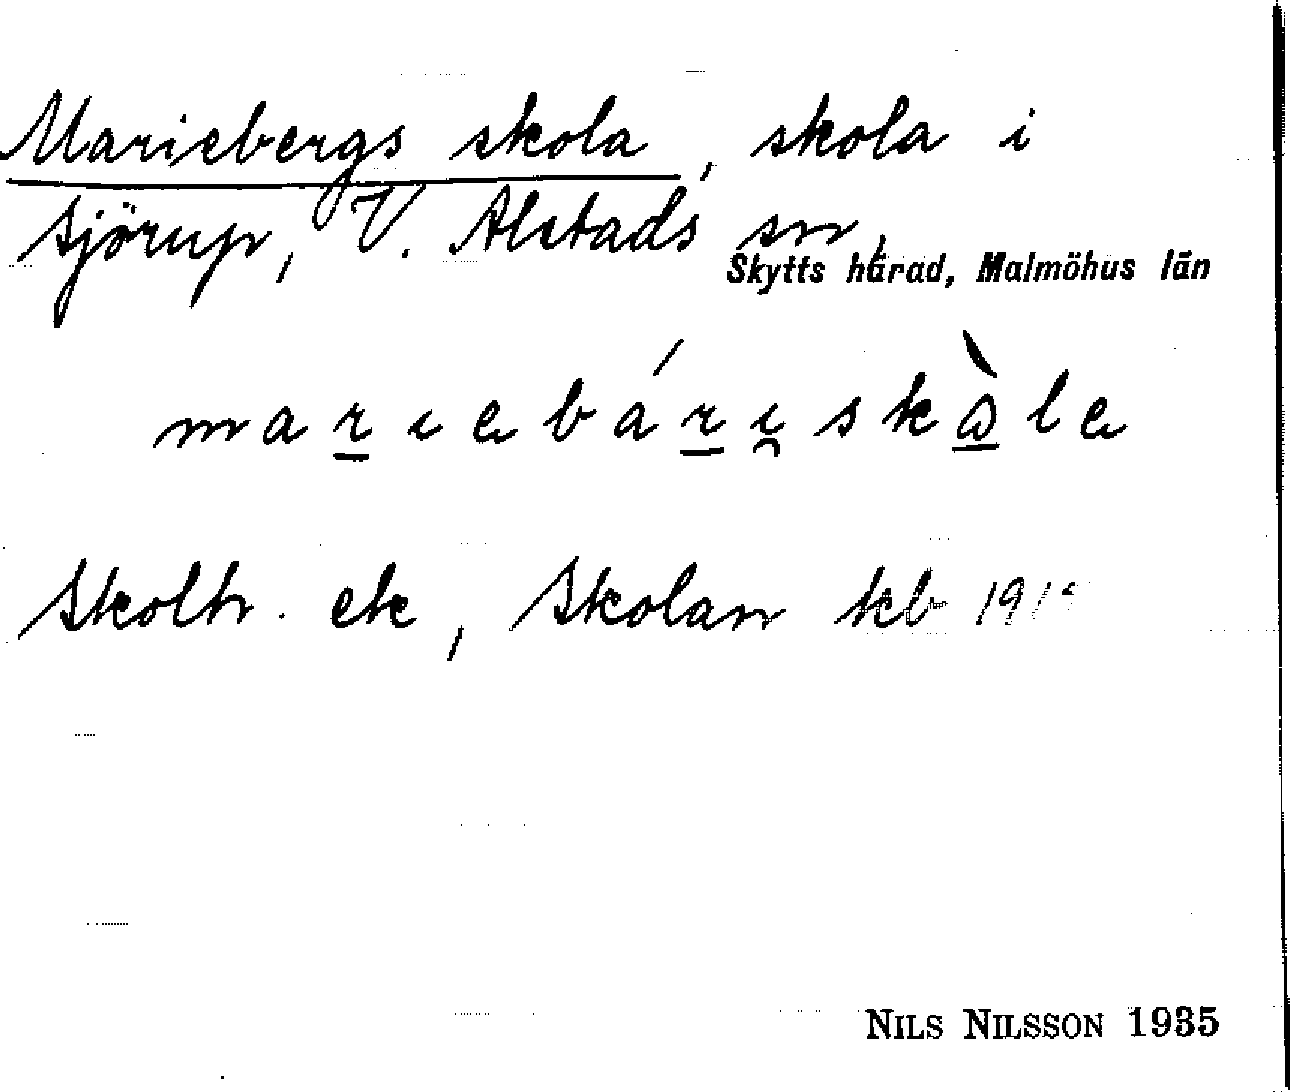 Mariebergs skola, skola i
Sjörup, V. Alstads sn,
Skytts härad, Malmöhus län
marıebárı̯skàle
Skoltr. ek, Skolan kb
NILS NILSSON 1935